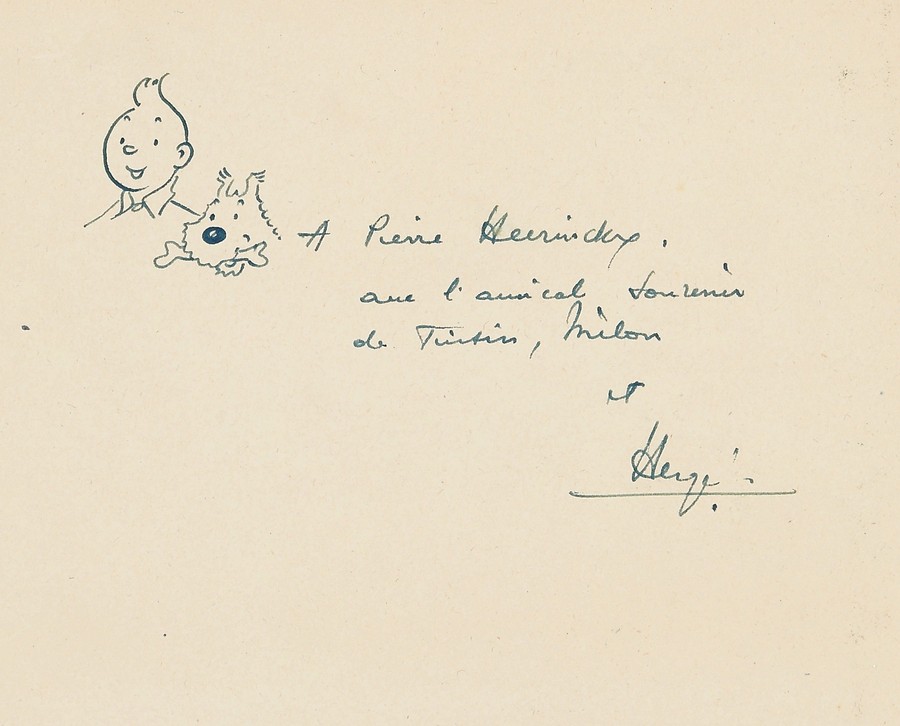 A Pierre Heerinckx.
avec l'amical souvenir
de Tintin, Milou
et
Hergé.